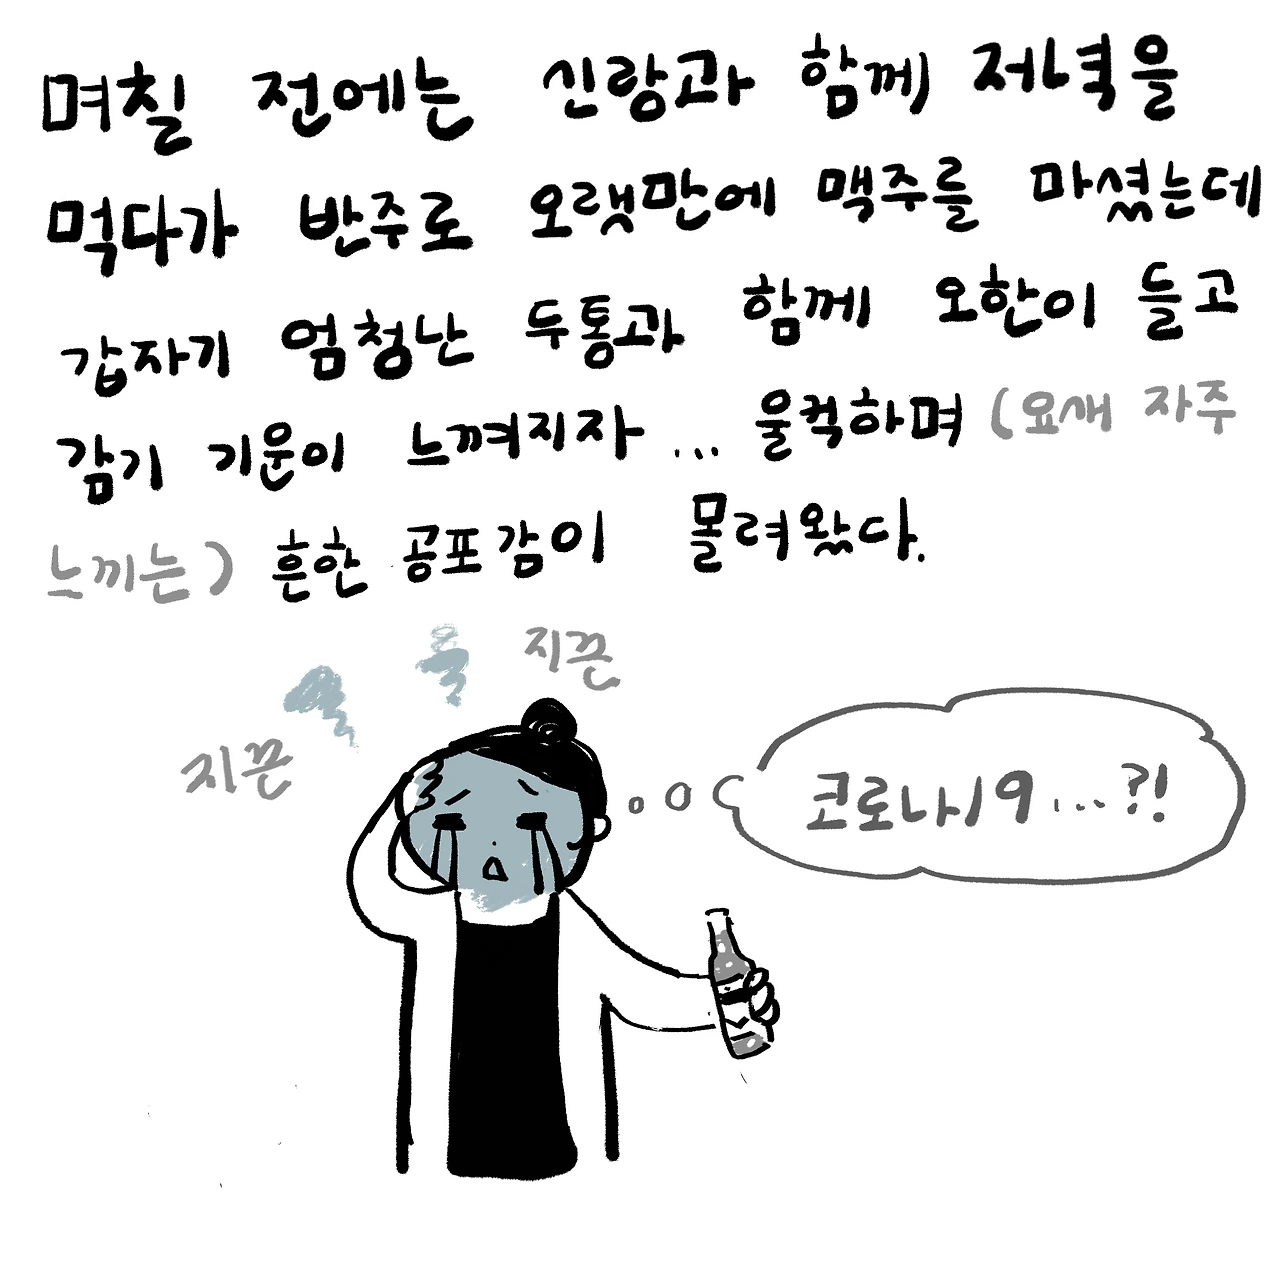 며칠 전에는 신랑과 함께 저녁을
먹다가 반주로 오랫만에 맥주를 마셨는데
갑자기 엄청난 두통과 함께 오한이 들고
감기 기운이 느껴지자 ... 울컥하며 (요새 자주
느끼는) 흔한 공포감이 몰려왔다.
지끈
지끈
코로나19...?!